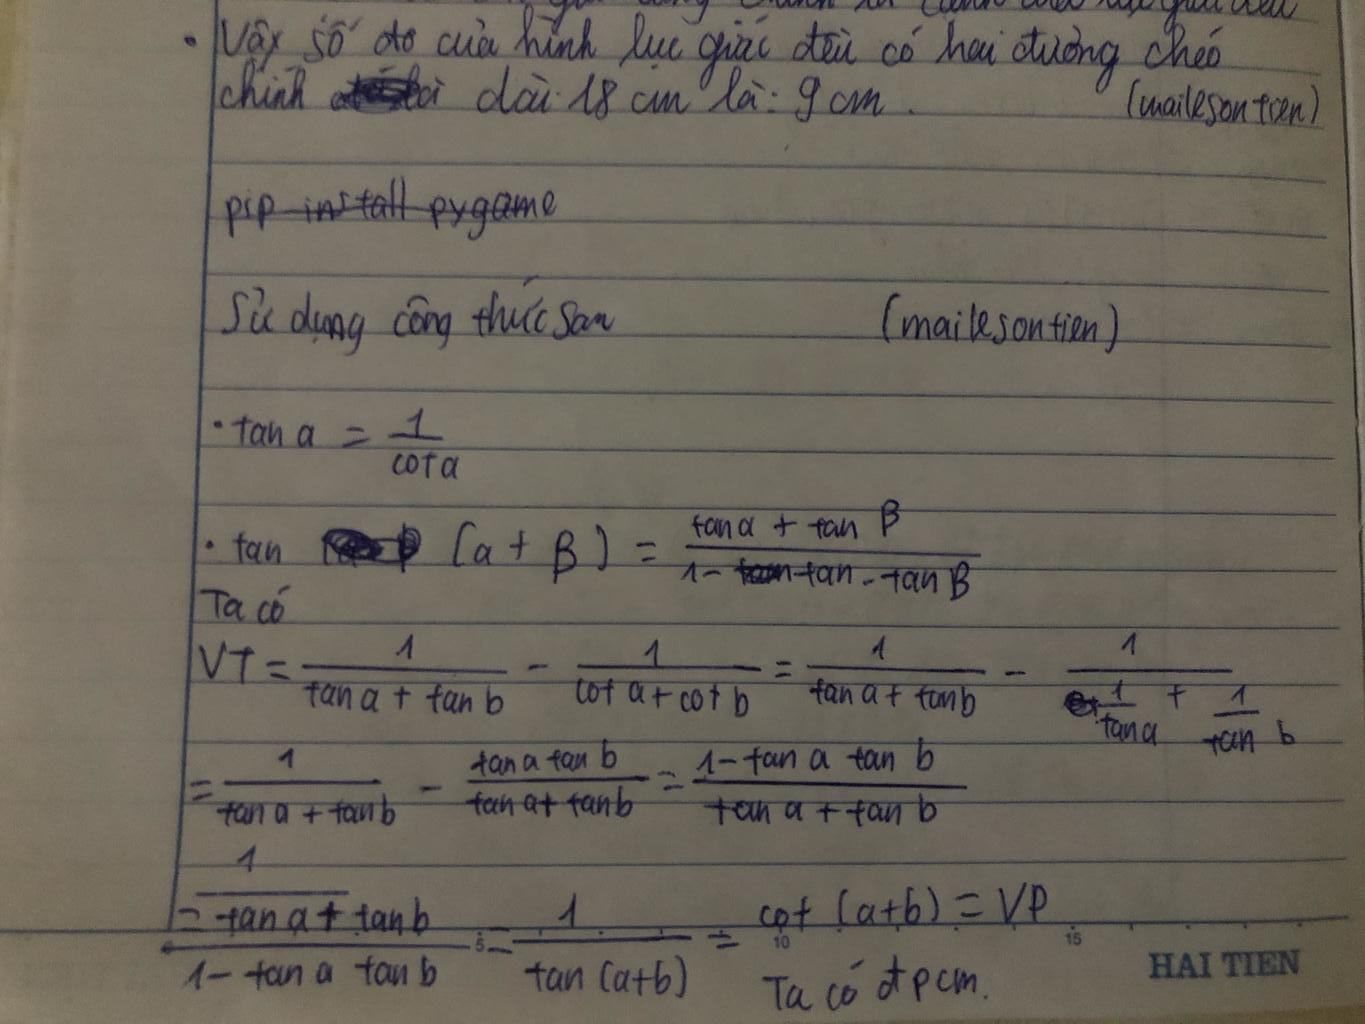 • Vậy số đo của hình lục giác đều có hai đường chéo
chính dài 18 cm là: 9 cm. (mailesontien)
pip install pygame
Sử dụng công thức sau (mailesontien)
• tan a = 1 / cot a
• tan (a + β) = tan a + tan β / 1 - tan - tan β
Ta có
VT = 1 / tan a + tan b - 1 / cot a + cot b = 1 / tan a + tan b - 1 / 1/tan a + 1/tan b
= 1 / tan a + tan b - tan a tan b / tan a + tan b = 1 - tan a tan b / tan a + tan b
= 1 / tan a + tan b / 1 - tan a tan b = 1 / tan (a+b) = cot (a+b) = VP
Ta có đpcm.
5 10 15
HAI TIEN